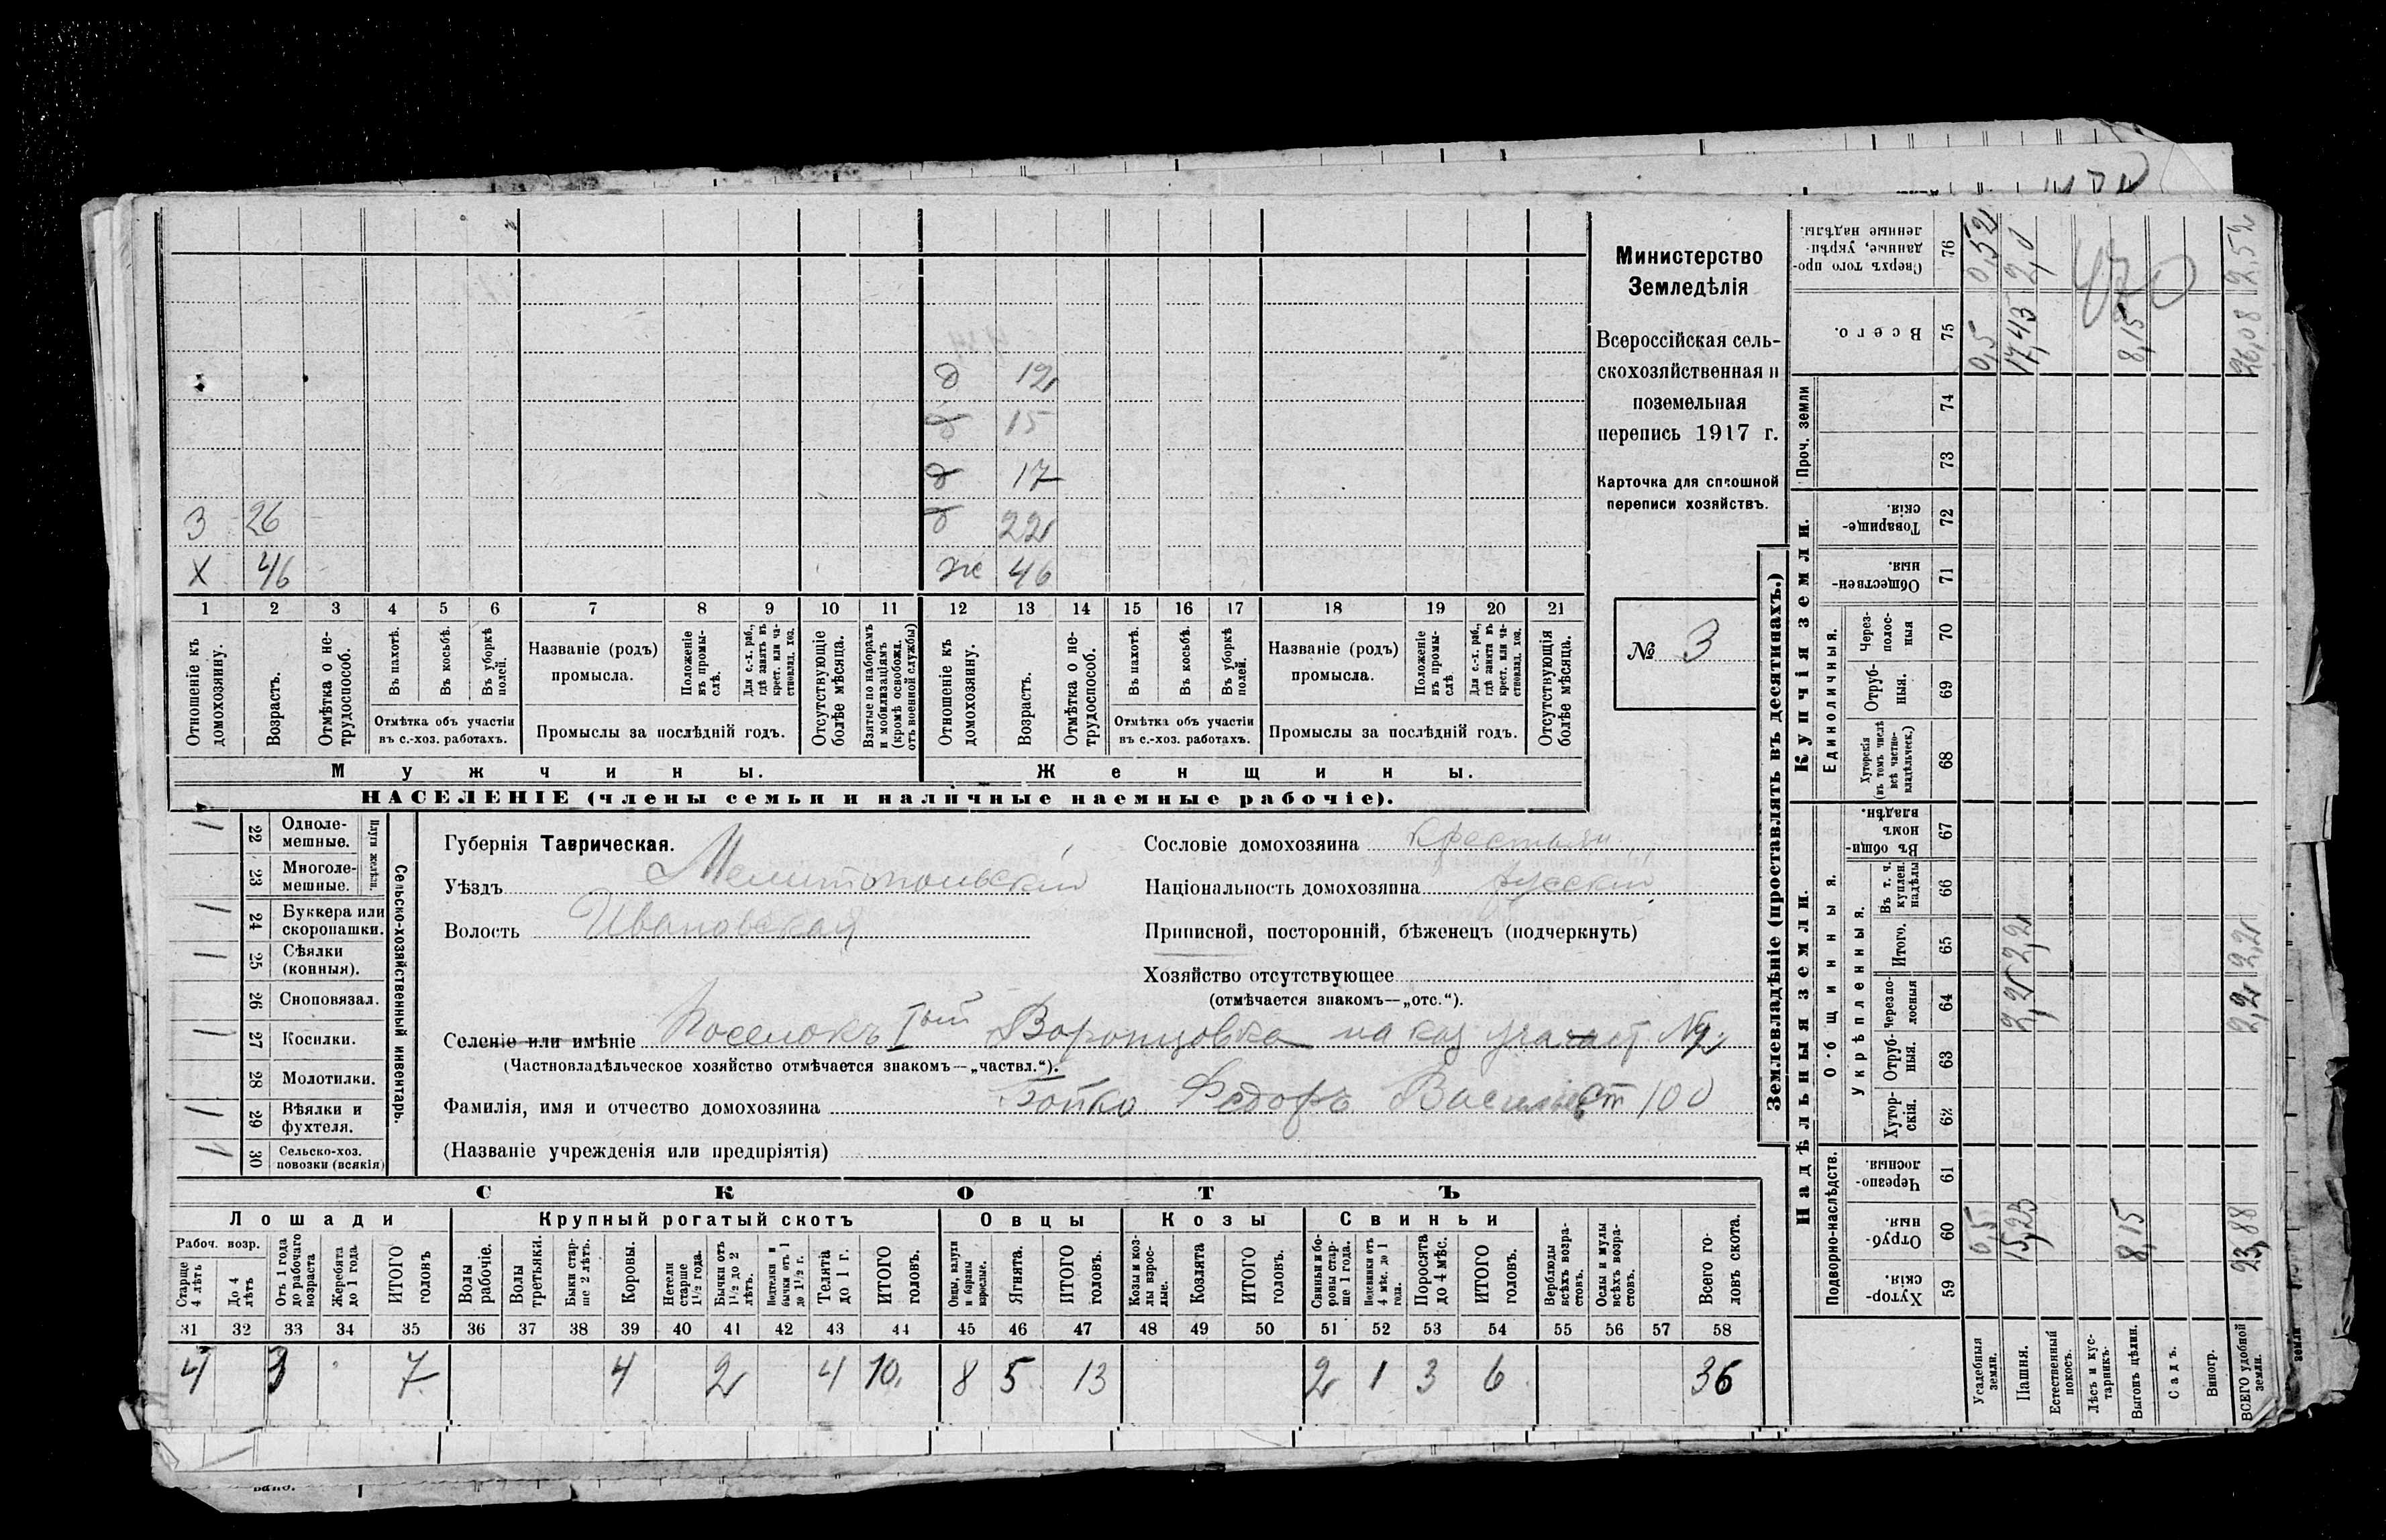 д 12
д 15
д 17
З 26 д 22
Х 46 ж 46
1 2 3 4 5 6 7 8 9 10 11 12 13 14 15 16 17 18 19 20 21
Отношеніе къ домохозяину.
Возрастъ.
Отмѣтка о не-трудоспособ.
Въ пахотѣ.
Въ косьбѣ.
Въ уборкѣ полей.
Отмѣтка объ участіи въ с.-хоз. работахъ.
Названіе (родъ) промысла.
Положеніе въ промы-слѣ.
Для с.-х. раб., гдѣ занятъ въ крест. или ча-стновлад. хоз.
Промыслы за послѣдній годъ.
Отсутствующіе болѣе мѣсяца.
Взятые по наборамъ и мобилизаціямъ (кромѣ освобожд. отъ военной службы)
Отношеніе къ домохозяину.
Возрастъ.
Отмѣтка о не-трудоспособ.
Въ пахотѣ.
Въ косьбѣ.
Въ уборкѣ полей.
Отмѣтка объ участіи въ с.-хоз. работахъ.
Названіе (родъ) промысла.
Положеніе въ промы-слѣ.
Для с.-х. раб., гдѣ занята въ крест. или ча-стновлад. хоз.
Промыслы за послѣдній годъ.
Отсутствующія болѣе мѣсяца.
Мужчины. Женщины.
НАСЕЛЕНІЕ (члены семьи и наличные наемные рабочіе).
Министерство
Земледѣлія
Всероссійская сель-
скохозяйственная и
поземельная
перепись 1917 г.
Карточка для сплошной
переписи хозяйствъ.
№ 3
Сельско-хозяйственный инвентарь.
Плуги желѣзн.
1 22 Одноле-мешные.
23 Многоле-мешные.
1 24 Буккера или скоропашки.
1 25 Сѣялки (конныя).
26 Сноповязал.
1 27 Косилки.
28 Молотилки.
1 29 Вѣялки и фухтеля.
30 Сельско-хоз. повозки (всякія)
Губернія Таврическая.
Уѣздъ Мелитопольскій
Волость Ивановская
Сословіе домохозяина крестьян.
Національность домохозяина русскій
Приписной, посторонній, бѣженецъ (подчеркнуть)
Хозяйство отсутствующее
(отмѣчается знакомъ—„отс.“).
Селеніе или имѣніе Поселокъ I Воронцовка на каз участ №2
(Частновладѣльческое хозяйство отмѣчается знакомъ—„частвл.“).
Фамилія, имя и отчество домохозяина Бойко Федоръ Василье 100
(Названіе учрежденія или предпріятія)
СКОТЪ
Лошади Крупный рогатый скотъ Овцы Козы Свиньи
Рабоч. возр.
Старше 4 лѣтъ
До 4 лѣтъ
Отъ 1 года до рабочаго возраста
Жеребята до 1 года.
ИТОГО головъ
Волы рабочіе.
Волы третьяки.
Быки стар-ше 2 лѣтъ.
Коровы.
Нетели старше 1½ года.
Бычки отъ 1½ до 2 лѣтъ.
Подтелки и бычки отъ 1 до 1½ г.
Телята до 1 г.
ИТОГО головъ.
Овцы, валухи и бараны взрослые.
Ягнята.
ИТОГО головъ.
Козы и коз-лы взрос-лые.
Козлята
ИТОГО головъ.
Свиньи и бо-ровы стар-ше 1 года.
Подсвинки отъ 4 мѣс. до 1 года.
Поросята до 4 мѣс.
ИТОГО головъ.
Верблюды всѣхъ возра-стовъ.
Ослы и мулы всѣхъ возра-стовъ.
Всего го-ловъ скота.
31 32 33 34 35 36 37 38 39 40 41 42 43 44 45 46 47 48 49 50 51 52 53 54 55 56 57 58
4 3 7 4 2 4 10 8 5 13 2 1 3 6 36
Землевладѣніе (проставлять въ десятинахъ.)
Надѣльныя земли. Купчія земли. Проч. земли
Подворно-наслѣдств.
Общинныя.
Укрѣпленныя.
Единоличныя.
Хутор-скія. 59
Отруб-ныя. 60
Черезпо-лосныя. 61
Хутор-скія. 62
Отруб-ныя. 63
Черезпо-лосныя 64
Итого. 65
Въ т. ч. куплен. надѣлы 66
Въ общин-номъ владѣн. 67
Хуторскія (въ томъ числѣ всѣ частно-владѣльческ.) 68
Отруб-ныя. 69
Через-полос-ныя 70
Обществен-ныя. 71
Товарище-скія. 72
73
74
Всего. 75
Сверхъ того про-данные, укрѣп-ленные надѣлы. 76
Усадебныя земли. 0,5 0,5 0,52
Пашня. 15,23 2,2 2,2 17,43 2,0
Естественный покосъ.
Лѣсъ и кус-тарникъ.
Выгонъ цѣлин. 8,15 8,15
Садъ.
Виногр.
ВСЕГО удобной земли. 23,88 2,2 2,2 26,08 2,52
470